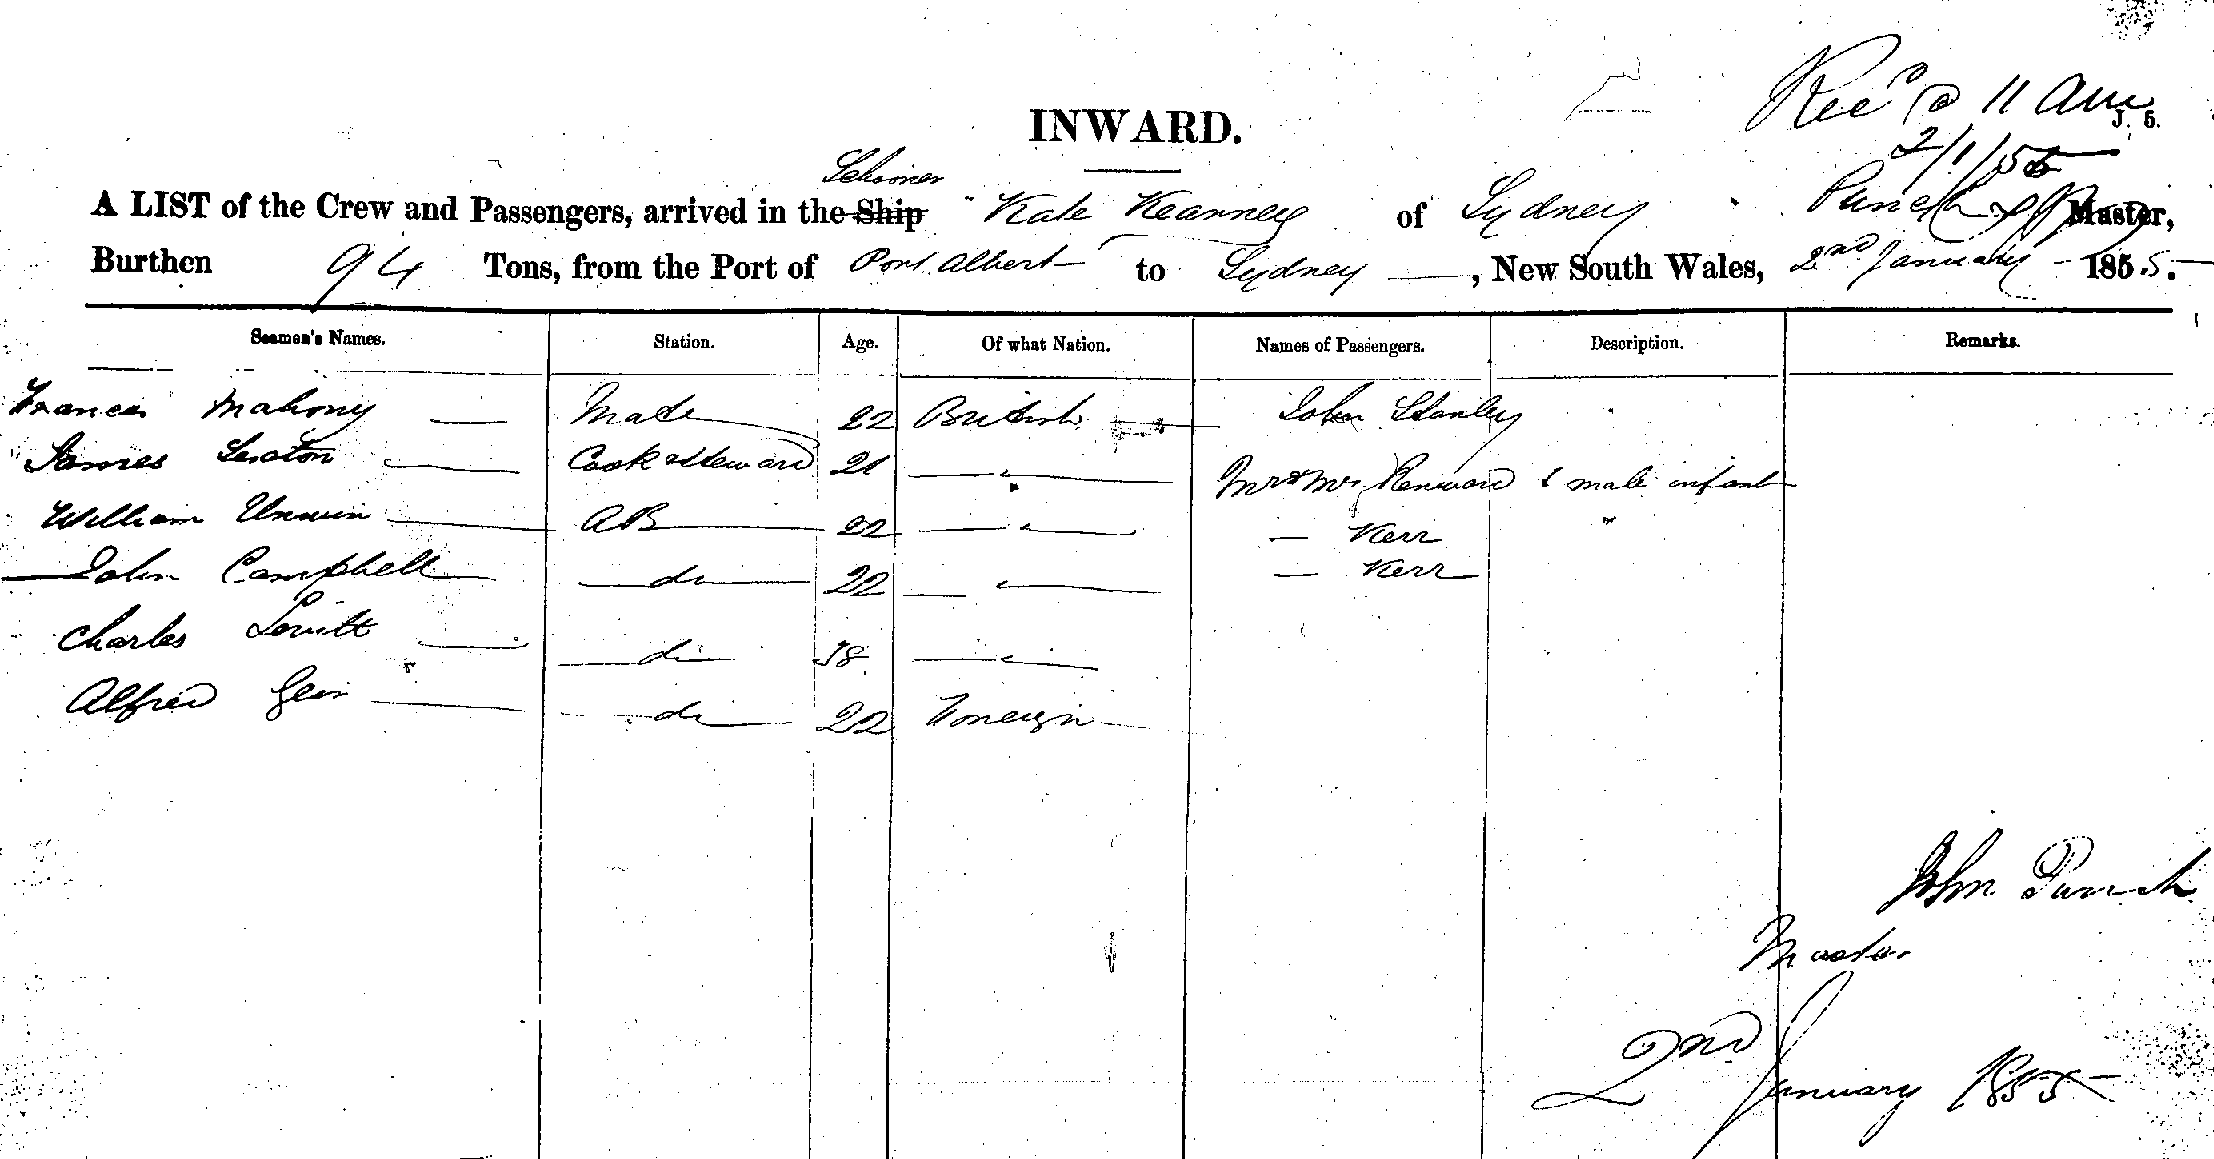 Recd @ 11 am
J. 5.
2/1/55
INWARD.
Schooner
A LIST of the Crew and Passengers, arrived in the Ship "Kate Kearney of Sydney Punch Master,
Burthen 94 Tons, from the Port of Port Albert to Sydney, New South Wales, 2nd January 1855.
Seamen's Names. Station. Age. Of what Nation. Names of Passengers. Description. Remarks.
Francis Mahony Mate 22 British John Stanley
James Sexton Cook & Steward 21 " Mr & Mrs Renward & male infant
William Unwin AB 22 " — Kerr
John Campbell do 22 " — Kerr
Charles Levitt do 38 "
Alfred do 22 Foreign
John Punch
Master
2nd January 1855